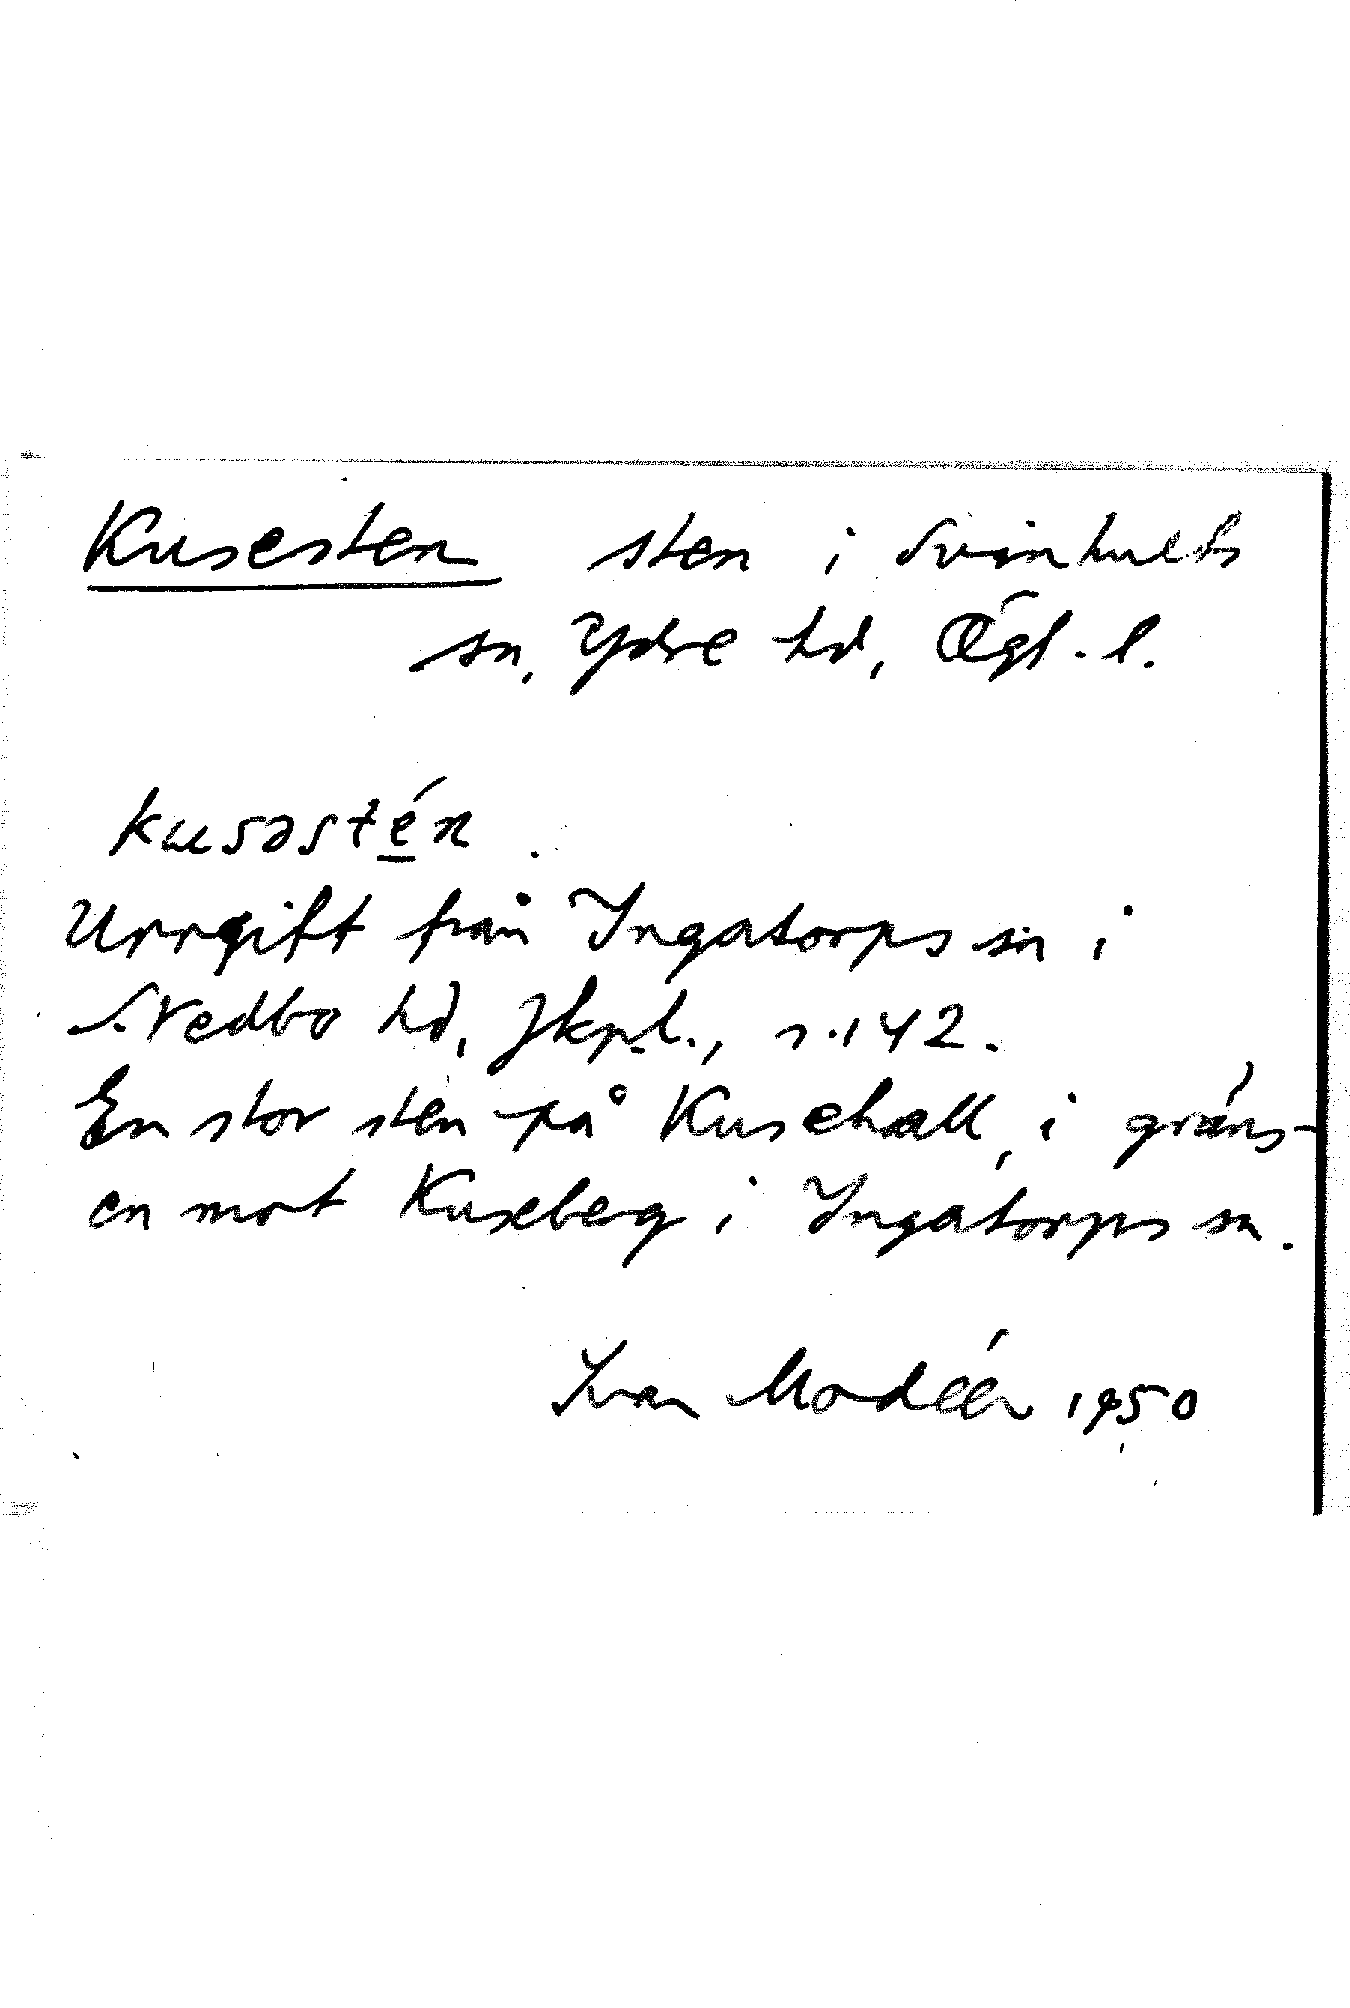 Kusesten sten i Svinhults
sn, Ydre hd, Ögl. l.
kusəstén.
Uppgift från Ingatorps sn i
S. Vedbo hd, Jkp.l., s. 142.
En stor sten på Kusehall, i gräns-
en mot Kuseberg i Ingatorps sn.
Ivar Modéer 1950